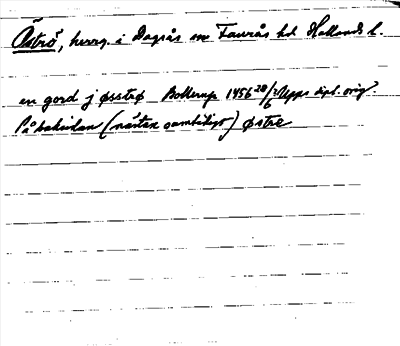 Åströ, herrg. i Dagsås sn Faurås hd Hallands l.
en gord j øsstrø Bollerup 1456 28/6 Upps dipl. orig
På baksidan (nästan samtidigt) østrø